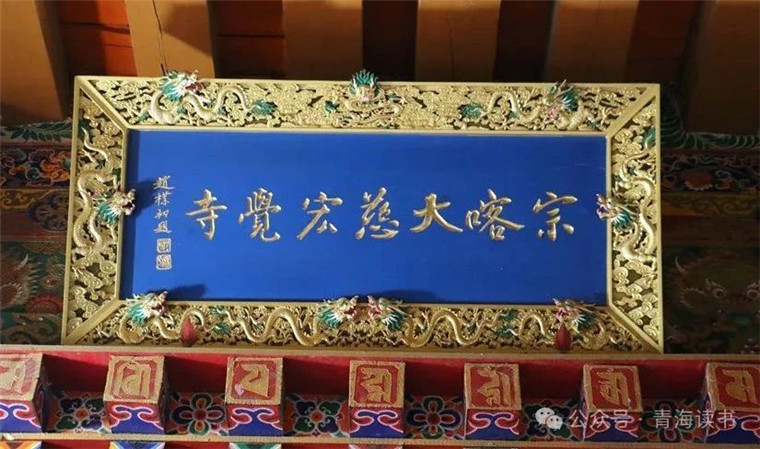 宗喀大慈宏覺寺
趙樸初題
公众号·青海读书